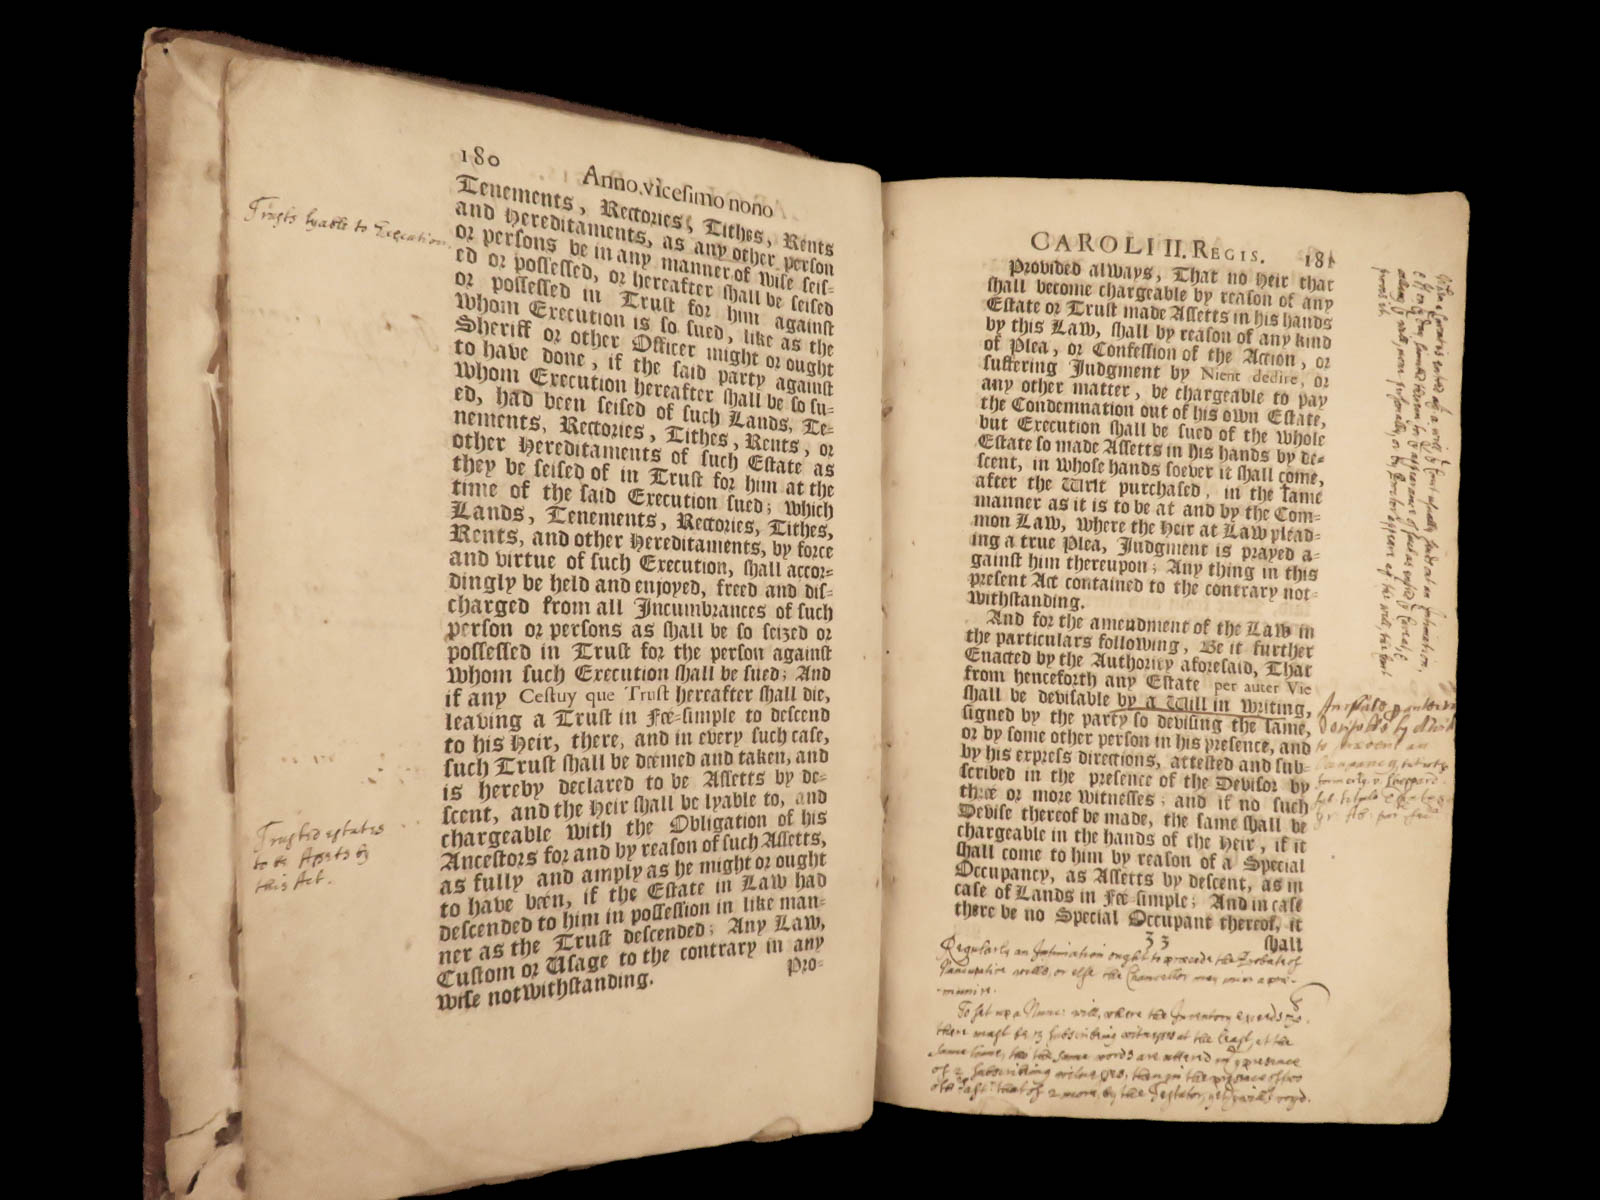 180
Anno vicesimo nono
Trusts lyable to Execution.
Tenements, Rectories, Tithes, Rents
and Hereditaments, as any other person
or persons be in any manner of wise seis-
ed or possessed, or hereafter shall be seised
or possessed in Trust for him against
whom Execution is so sued, like as the
Sheriff or other Officer might or ought
to have done, if the said party against
whom Execution hereafter shall be so su-
ed, had been seised of such Lands, Te-
nements, Rectories, Tithes, Rents, or
other Hereditaments of such Estate as
they be seised of in Trust for him at the
time of the said Execution sued; which
Lands, Tenements, Rectories, Tithes,
Rents, and other Hereditaments, by force
and virtue of such Execution, shall accor-
dingly be held and enjoyed, freed and dis-
charged from all Incumbrances of such
person or persons as shall be so seized or
possessed in Trust for the person against
whom such Execution shall be sued; And
if any Cestuy que Trust hereafter shall die,
leaving a Trust in Fee-simple to descend
to his Heir, there, and in every such case,
such Trust shall be deemed and taken, and
is hereby declared to be Assetts by de-
scent, and the Heir shall be lyable to, and
chargeable with the Obligation of his
Ancestors for and by reason of such Assetts,
as fully and amply as he might or ought
to have been, if the Estate in Law had
descended to him in possession in like man-
ner as the Trust descended; Any Law,
Custom or Usage to the contrary in any
wise notwithstanding.
Pro-
Trusted estates
to be Assets by
this Act.
CAROLI II. REGIS.
181
Provided always, That no Heir that
shall become chargeable by reason of any
Estate or Trust made Assetts in his hands
by this Law, shall by reason of any kind
of Plea, or Confession of the Action, or
suffering Judgment by Nient dedire, or
any other matter, be chargeable to pay
the Condemnation out of his own Estate,
but Execution shall be sued of the whole
Estate so made Assetts in his hands by de-
scent, in whose hands soever it shall come,
after the Writ purchased, in the same
manner as it is to be at and by the Com-
mon Law, where the Heir at Law plead-
ing a true Plea, Judgment is prayed a-
gainst him thereupon; Any thing in this
present Act contained to the contrary not-
withstanding.
And for the amendment of the Law in
the particulars following, Be it further
Enacted by the Authority aforesaid, That
from henceforth any Estate per auter Vie
shall be devisable by a Will in writing,
signed by the party so devising the same,
or by some other person in his presence, and
by his express directions, attested and sub-
scribed in the presence of the Devisor by
three or more witnesses; and if no such
Devise thereof be made, the same shall be
chargeable in the hands of the Heir, if it
shall come to him by reason of a Special
Occupancy, as Assetts by descent, as in
case of Lands in Fee-simple; And in case
there be no Special Occupant thereof, it
33
shall
Regularly an Intimation ought to precede the Probate of
Nuncupative wills, or else the Chancellor may
To set up a Nunc: will, where the Inventory exceeds
there must be 3 subscribing witnesses at the least, at the
same time, the same words are uttered in presence
of 2 subscribing
that of 2 more, by the Testator,